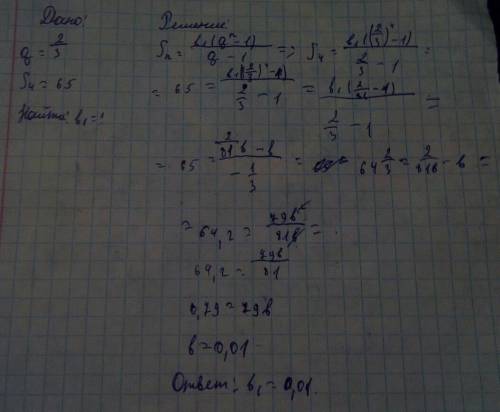 Дано:
q = 2/3
S₄ = 65
Найти: b₁ = ?
Решение:
Sₙ = b₁(qⁿ - 1)/(q - 1) => S₄ = b₁((2/3)ⁿ - 1)/(2/3 - 1) =
= 65 = b₁((2/3)ⁿ - 1)/(2/3 - 1) = b₁(2/81 - 1)/(2/3 - 1) =
= 65 = (2/81 b - b)/(-1/3) = 64 2/3 = 2/81b - b =
= 64,2 = 79b²/81b =
64,2 = 79b/81
0,79 = 79b
b = 0,01
Ответ: b₁ = 0,01.